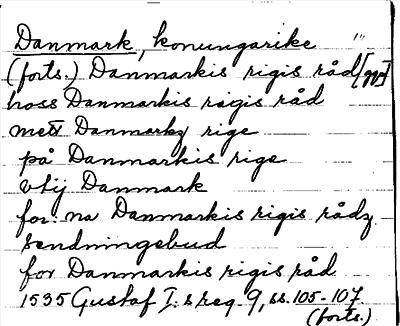 Danmark, konungarike "
(forts.) Danmarkis rigis råd [gp]
hoss Danmarkis rigis råd
mett Danmarkz rige
på Danmarkis rige
vtij Danmark
for:na Danmarkis rigis rådz
sendningebud
for Danmarkis rigis råd
1535 Gustaf I:s reg. 9, ss. 105-107.
(forts.)